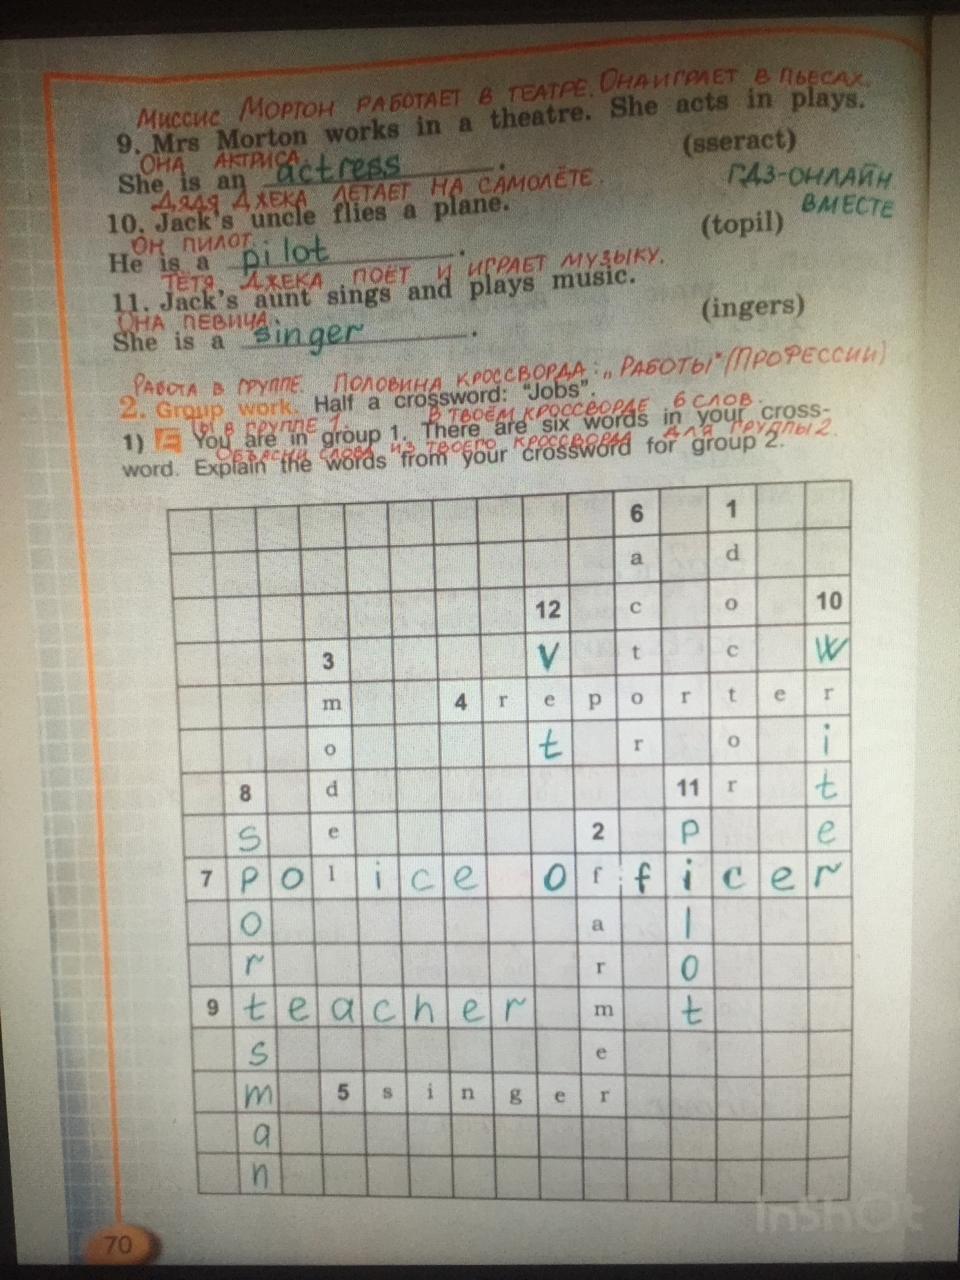 МИССИС МОРТОН РАБОТАЕТ В ТЕАТРЕ. ОНА ИГРАЕТ В ПЬЕСАХ.
9. Mrs Morton works in a theatre. She acts in plays.
ОНА АКТРИСА.
She is an actress. (sseract)
ДЯДЯ ДЖЕКА ЛЕТАЕТ НА САМОЛЁТЕ.
ГДЗ-ОНЛАЙН
ВМЕСТЕ
10. Jack's uncle flies a plane.
ОН ПИЛОТ.
He is a pilot. (topil)
ТЁТЯ ДЖЕКА ПОЁТ И ИГРАЕТ МУЗЫКУ.
11. Jack's aunt sings and plays music.
ОНА ПЕВИЦА.
She is a singer. (ingers)
РАБОТА В ГРУППЕ. ПОЛОВИНА КРОССВОРДА: „РАБОТЫ" (ПРОФЕССИИ)
2. Group work. Half a crossword: "Jobs".
ТЫ В ГРУППЕ 1. В ТВОЁМ КРОССВОРДЕ 6 СЛОВ.
1) You are in group 1. There are six words in your cross-
ОБЪЯСНИ СЛОВА ИЗ ТВОЕГО КРОССВОРДА ДЛЯ ГРУППЫ 2.
word. Explain the words from your crossword for group 2.
6 1
a d
12 c o 10
3 V t c W
m 4 r e p o r t e r
o t r o i
8 d 11 r t
s e 2 p e
7 p o l i c e o f f i c e r
o a l
r r o
9 t e a c h e r m t
s e
m 5 s i n g e r
a
n
70
InShOt